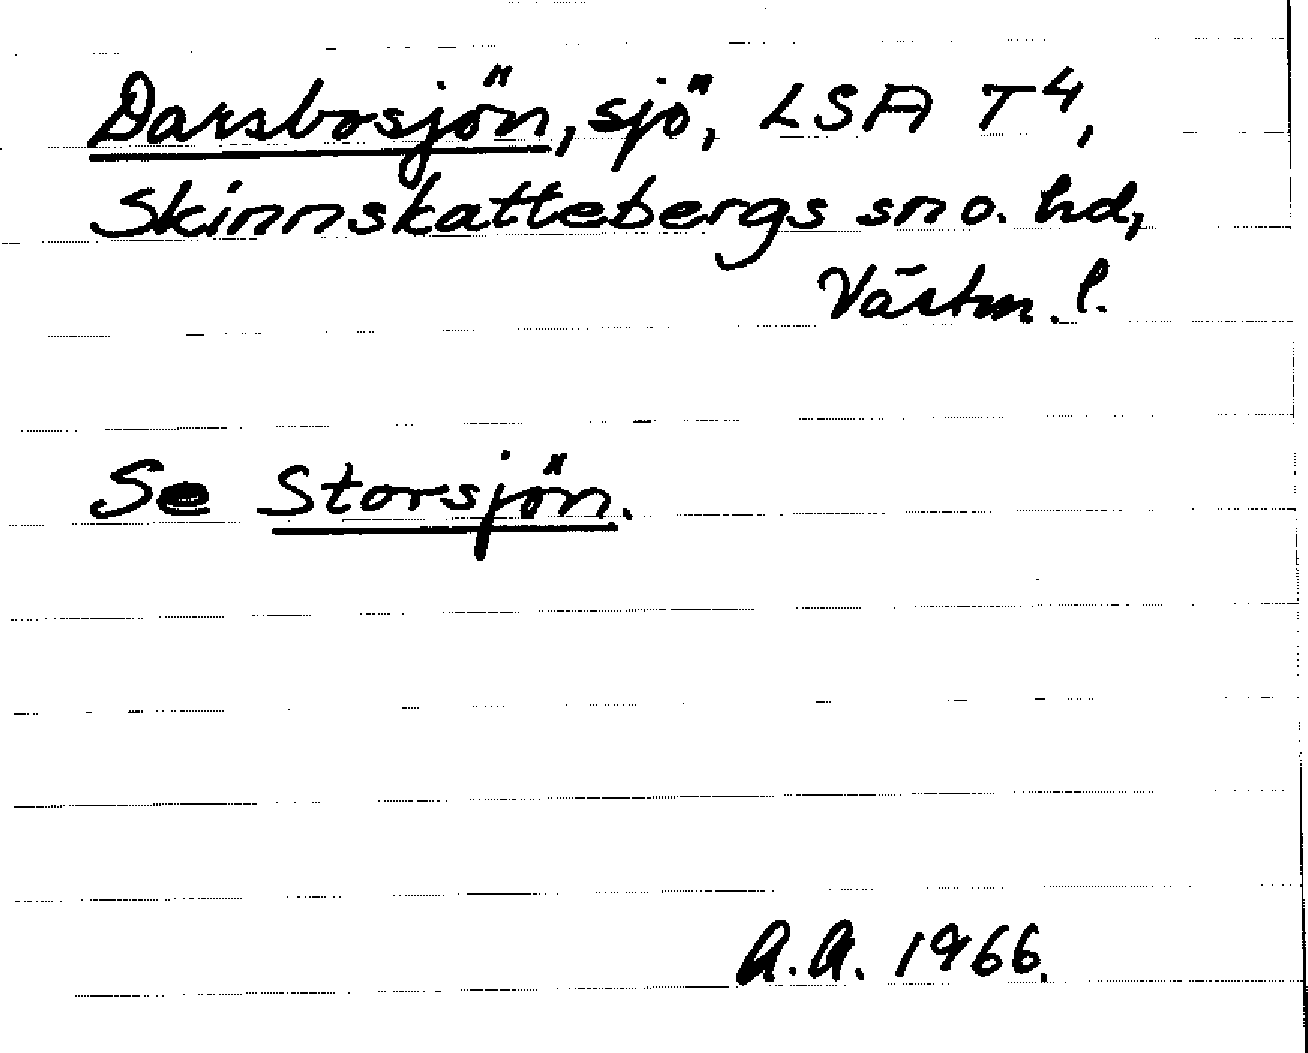 Darsbosjön, sjö, LSA T4,
Skinnskattebergs sn o. hd,
Västm. l.
Se Storsjön.
A.A. 1966.